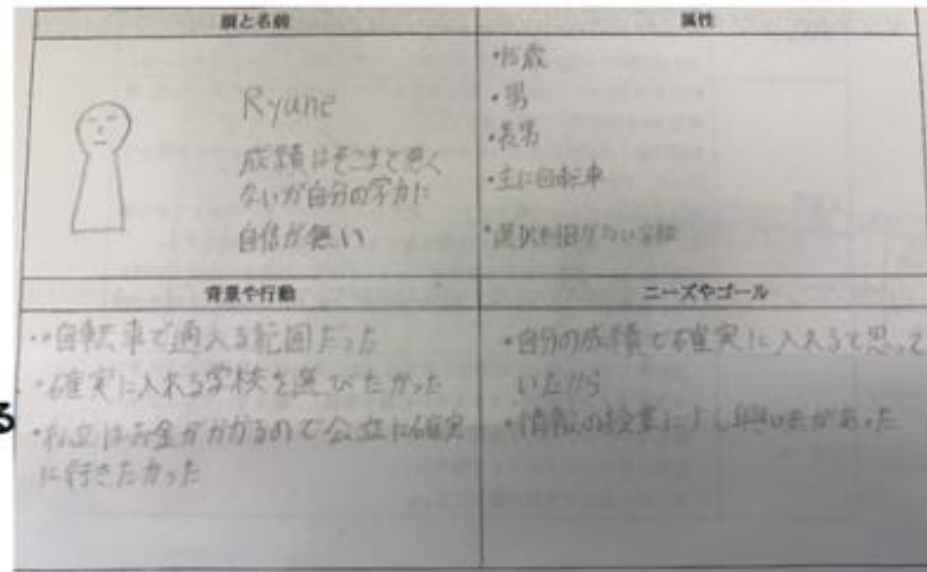 顔と名前
Ryune
成績はそこまで悪く
ないが自分の学力に
自信が無い
属性
・15歳
・男
・長男
・主に自転車
・選択科目が多い学校
背景や行動
・自転車で通える範囲だった
・確実に入れる学校を選びたかった
・私立はお金がかかるので公立に確実
に行きたかった
ニーズやゴール
・自分の成績で確実に入れると思って
いたから
・情報の授業に少し興味があった
る